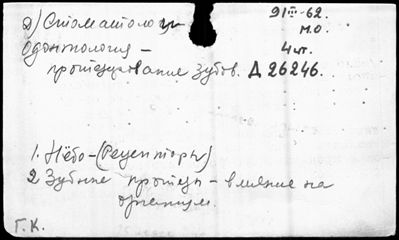 д) Стоматология 91 III-62.
Одонтология - М.О.
4 чт.
протезирование зубов. Д 26246.
1. Нёбо - (Рецепторы)
2 Зубные протезы - влияние на
организм.
Г. К.